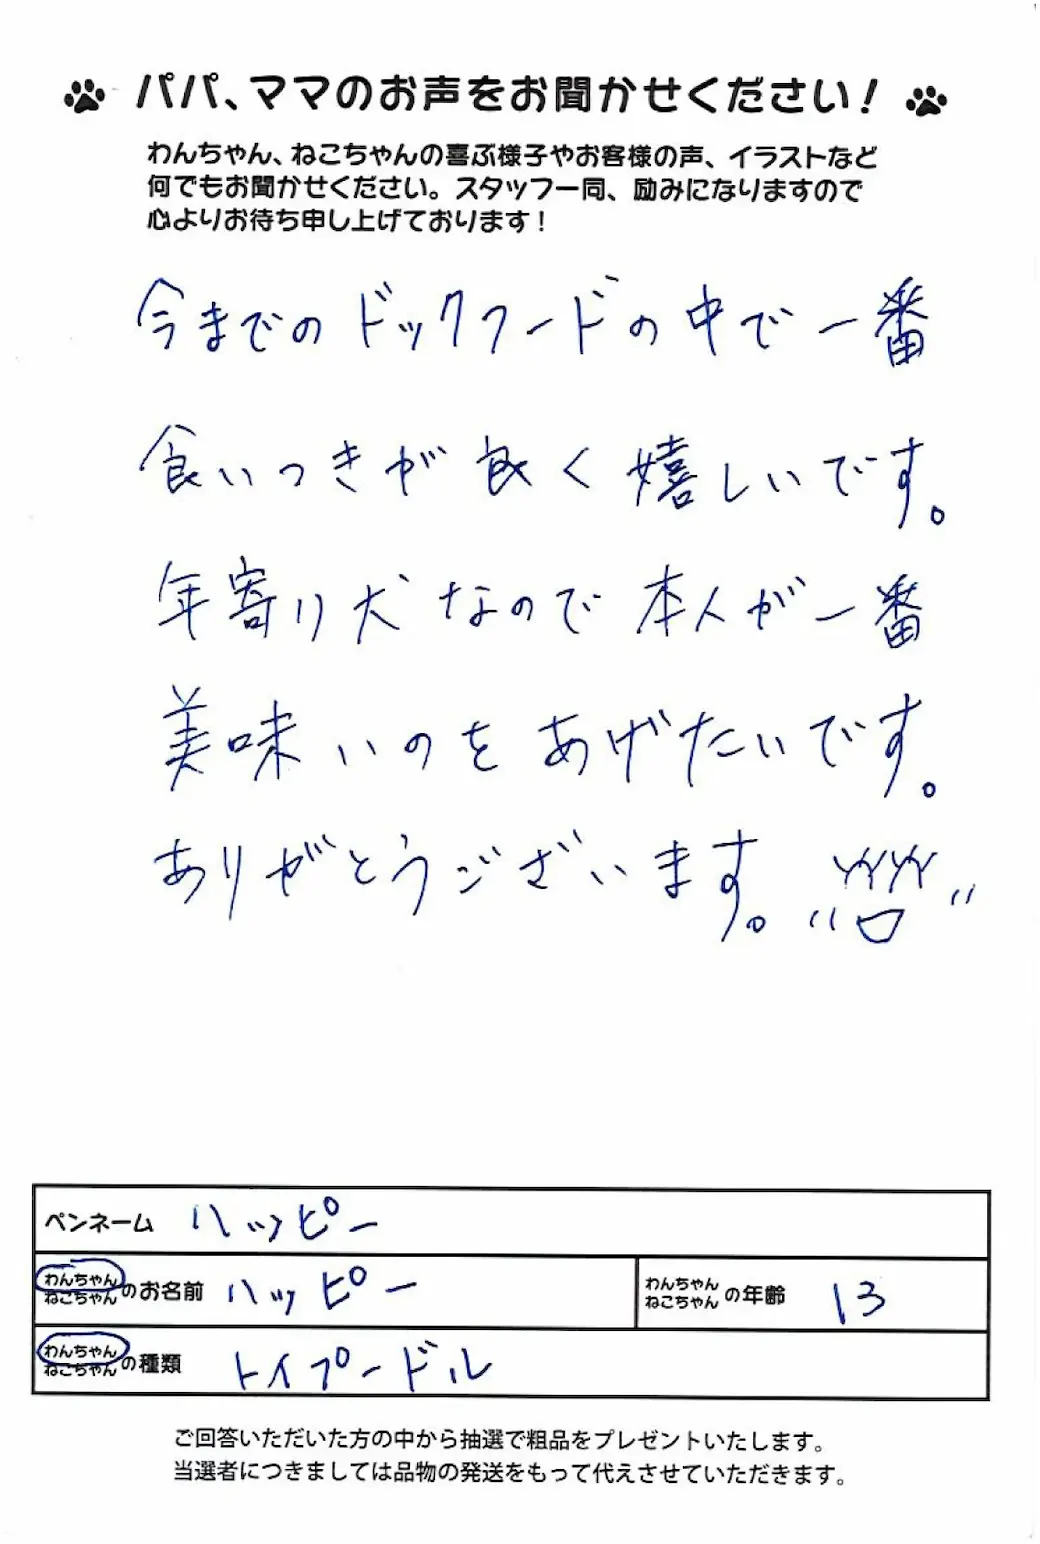 パパ、ママのお声をお聞かせください!
わんちゃん、ねこちゃんの喜ぶ様子やお客様の声、イラストなど
何でもお聞かせください。スタッフ一同、励みになりますので
心よりお待ち申し上げております!
今までのドックフードの中で一番
食いつきが良く嬉しいです。
年寄り犬なので本人が一番
美味いのをあげたいです。
ありがとうございます。
ペンネーム ハッピー
わんちゃん
ねこちゃん
のお名前 ハッピー
わんちゃん
ねこちゃん
の年齢 13
わんちゃん
ねこちゃん
の種類 トイプードル
ご回答いただいた方の中から抽選で粗品をプレゼントいたします。
当選者につきましては品物の発送をもって代えさせていただきます。